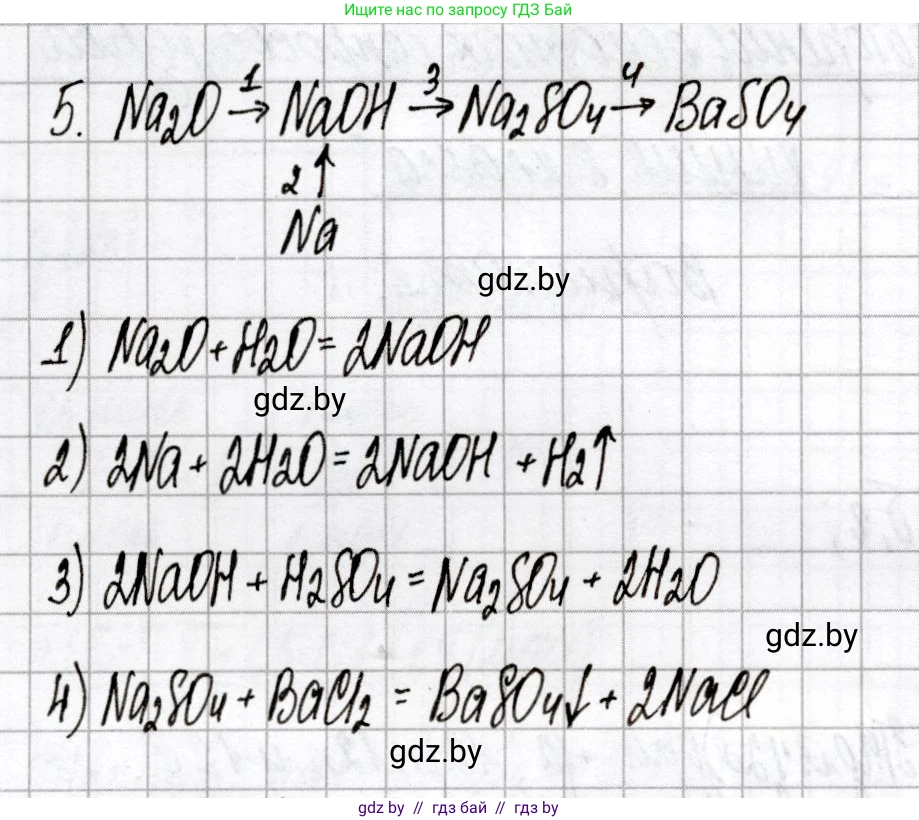 Ищите нас по запросу ГДЗ Бай
5. Na2O →1 NaOH →3 Na2SO4 →4 BaSO4
2↑
Na
gdz.by
1) Na2O + H2O = 2NaOH
gdz.by
2) 2Na + 2H2O = 2NaOH + H2↑
3) 2NaOH + H2SO4 = Na2SO4 + 2H2O
gdz.by
4) Na2SO4 + BaCl2 = BaSO4↓ + 2NaCl
gdz.by
gdz.by // гдз бай // гдз by